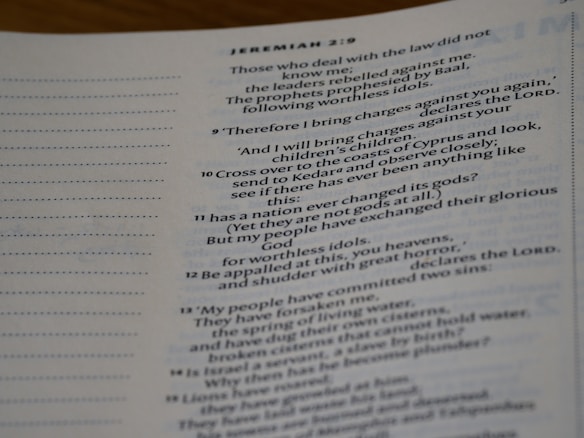 JEREMIAH 2:9
Those who deal with the law did not
know me;
the leaders rebelled against me.
The prophets prophesied by Baal,
following worthless idols.
9 ‘Therefore I bring charges against you again,’
declares the LORD.
‘And I will bring charges against your
children’s children.
10 Cross over to the coasts of Cyprus and look,
send to Kedarᵃ and observe closely;
see if there has ever been anything like
this:
11 has a nation ever changed its gods?
(Yet they are not gods at all.)
But my people have exchanged their glorious
God
for worthless idols.
12 Be appalled at this, you heavens,
and shudder with great horror,’
declares the LORD.
13 ‘My people have committed two sins:
They have forsaken me,
the spring of living water,
and have dug their own cisterns,
broken cisterns that cannot hold water.
14 Is Israel a servant, a slave by birth?
Why then has he become plunder?
15 Lions have roared;
they have growled at him.
They have laid waste his land;
his towns are burned and deserted.
of Memphis and Tahpanhes